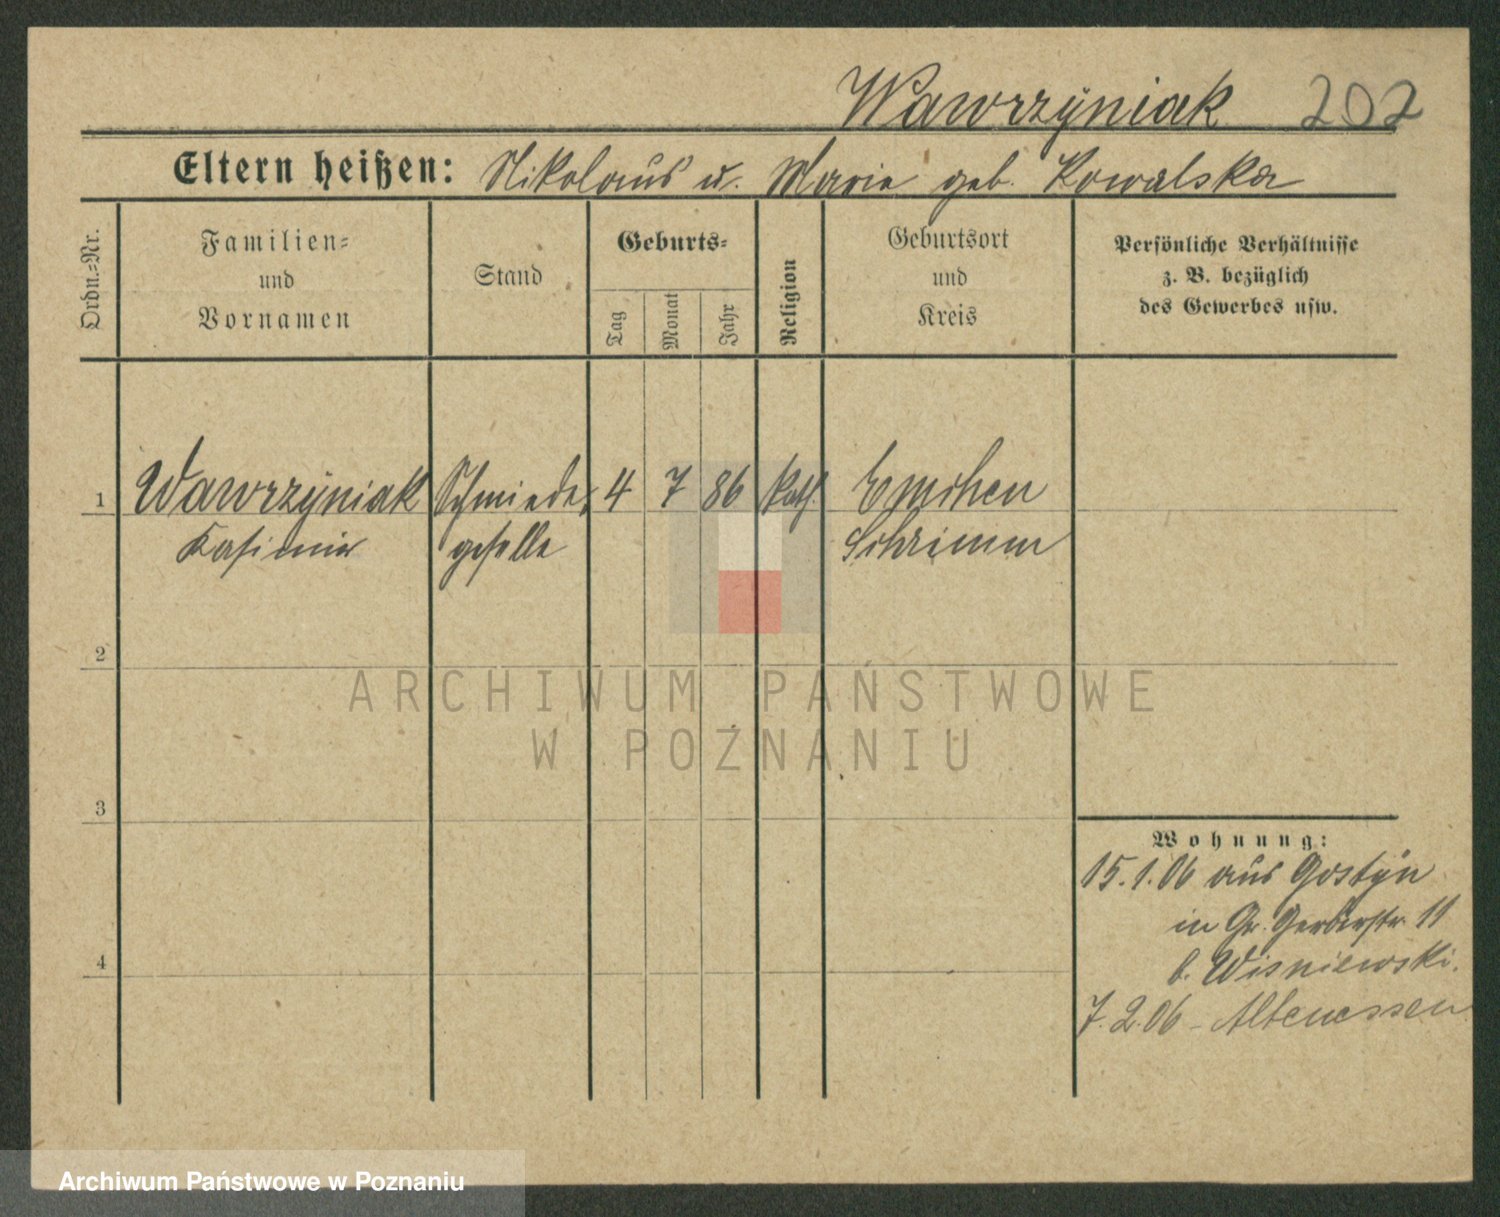 Wawrzÿniak 202
Eltern heißen: Nikolaus u. Marie geb. Kowalska
Ordn.-Nr.
Familien-
und
Vornamen
Stand
Geburts-
Tag
Monat
Jahr
Religion
Geburtsort
und
Kreis
Persönliche Verhältnisse
z. B. bezüglich
des Gewerbes usw.
1 Wawrzÿniak Schmiede- 4 7 86 kath. Emchen
Kasimir geselle Schrimm
2
ARCHIWUM PAŃSTWOWE
W POZNANIU
3
Wohnung:
15.1.06 aus Gostÿn
in Gr. Gerberstr. 11
b. Wisniewski.
4
7.2.06 - Altenessen
Archiwum Państwowe w Poznaniu